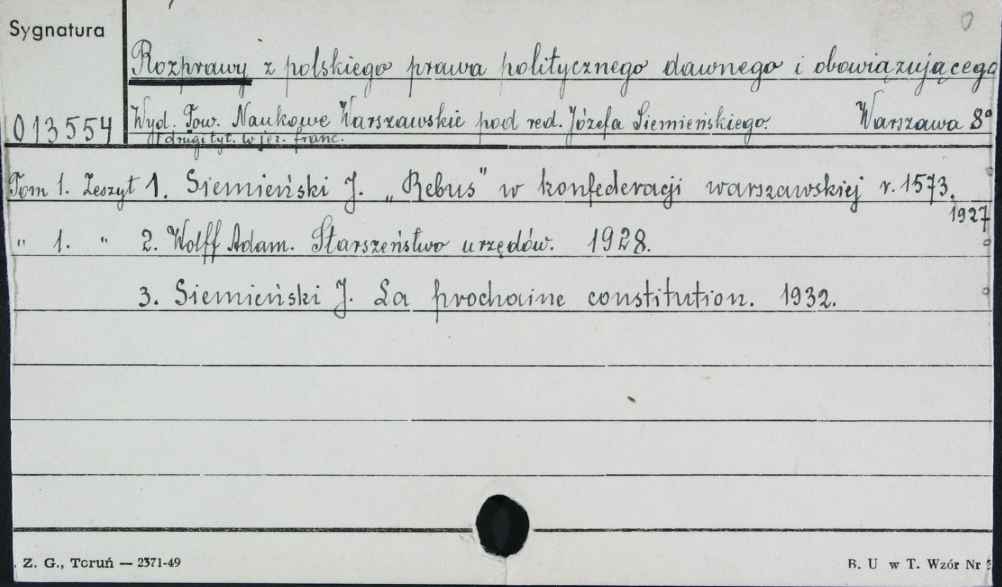 Sygnatura
Rozprawy z polskiego prawa politycznego dawnego i obowiązującego
013554 Wyd. Tow. Naukowe Warszawskie pod red. Józefa Siemieńskiego. Warszawa 8°
drugi tyt. w jęz. franc.
Tom 1. Zeszyt 1. Siemieński J. „Rebus" w konfederacji warszawskiej r. 1573.
1927
" 1. " 2. Wolff Adam. Starszeństwo urzędów. 1928.
3. Siemieński J. La prochaine constitution. 1932.
Z. G., Toruń — 2371-49 B. U w T. Wzór Nr